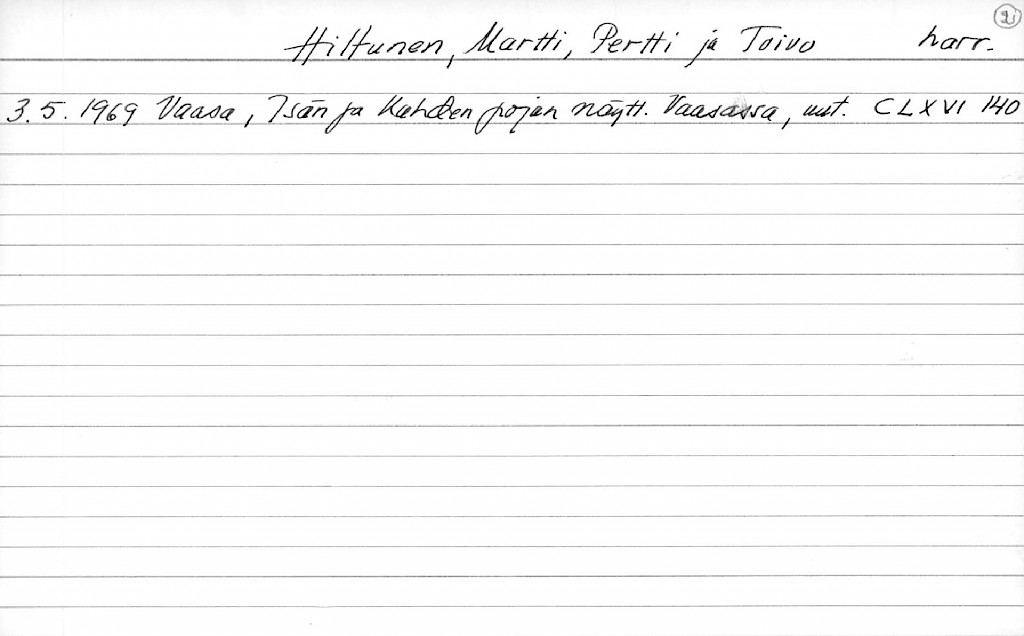 Hiltunen, Martti, Pertti ja Toivo harr.
3.5. 1969 Vaasa, Isän ja Kahden pojan näytt. Vaasassa, uut. CLXVI 140